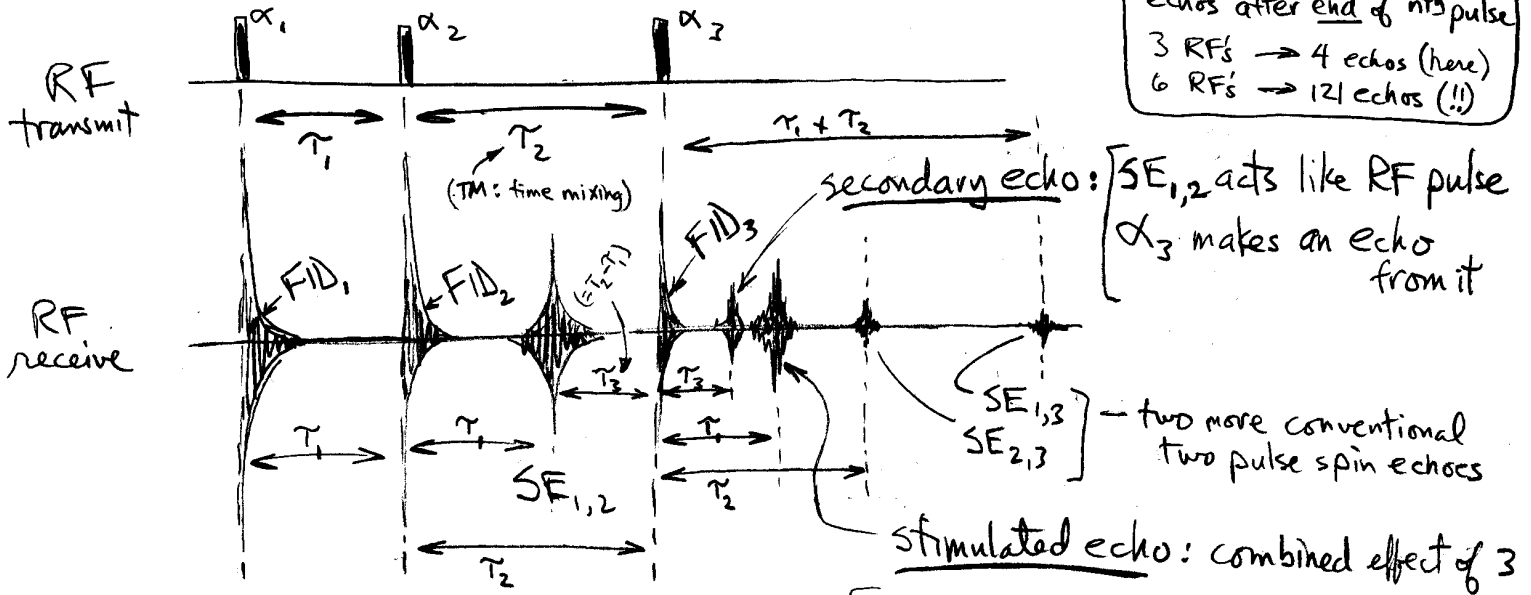 α₁
α₂
α₃
echos after end of nth pulse
3 RF's → 4 echos (here)
6 RF's → 121 echos (!!)
RF
transmit
τ₁
τ₂
(TM: time mixing)
τ₁ + τ₂
secondary echo: [SE₁,₂ acts like RF pulse
α₃ makes an echo
from it
RF
receive
FID₁
FID₂
(=τ₂-τ₁)
FID₃
τ₃
τ₃
τ₁
τ₁
τ₁
SE₁,₂
τ₂
τ₂
SE₁,₃
SE₂,₃
] – two more conventional
two pulse spin echoes
stimulated echo: combined effect of 3